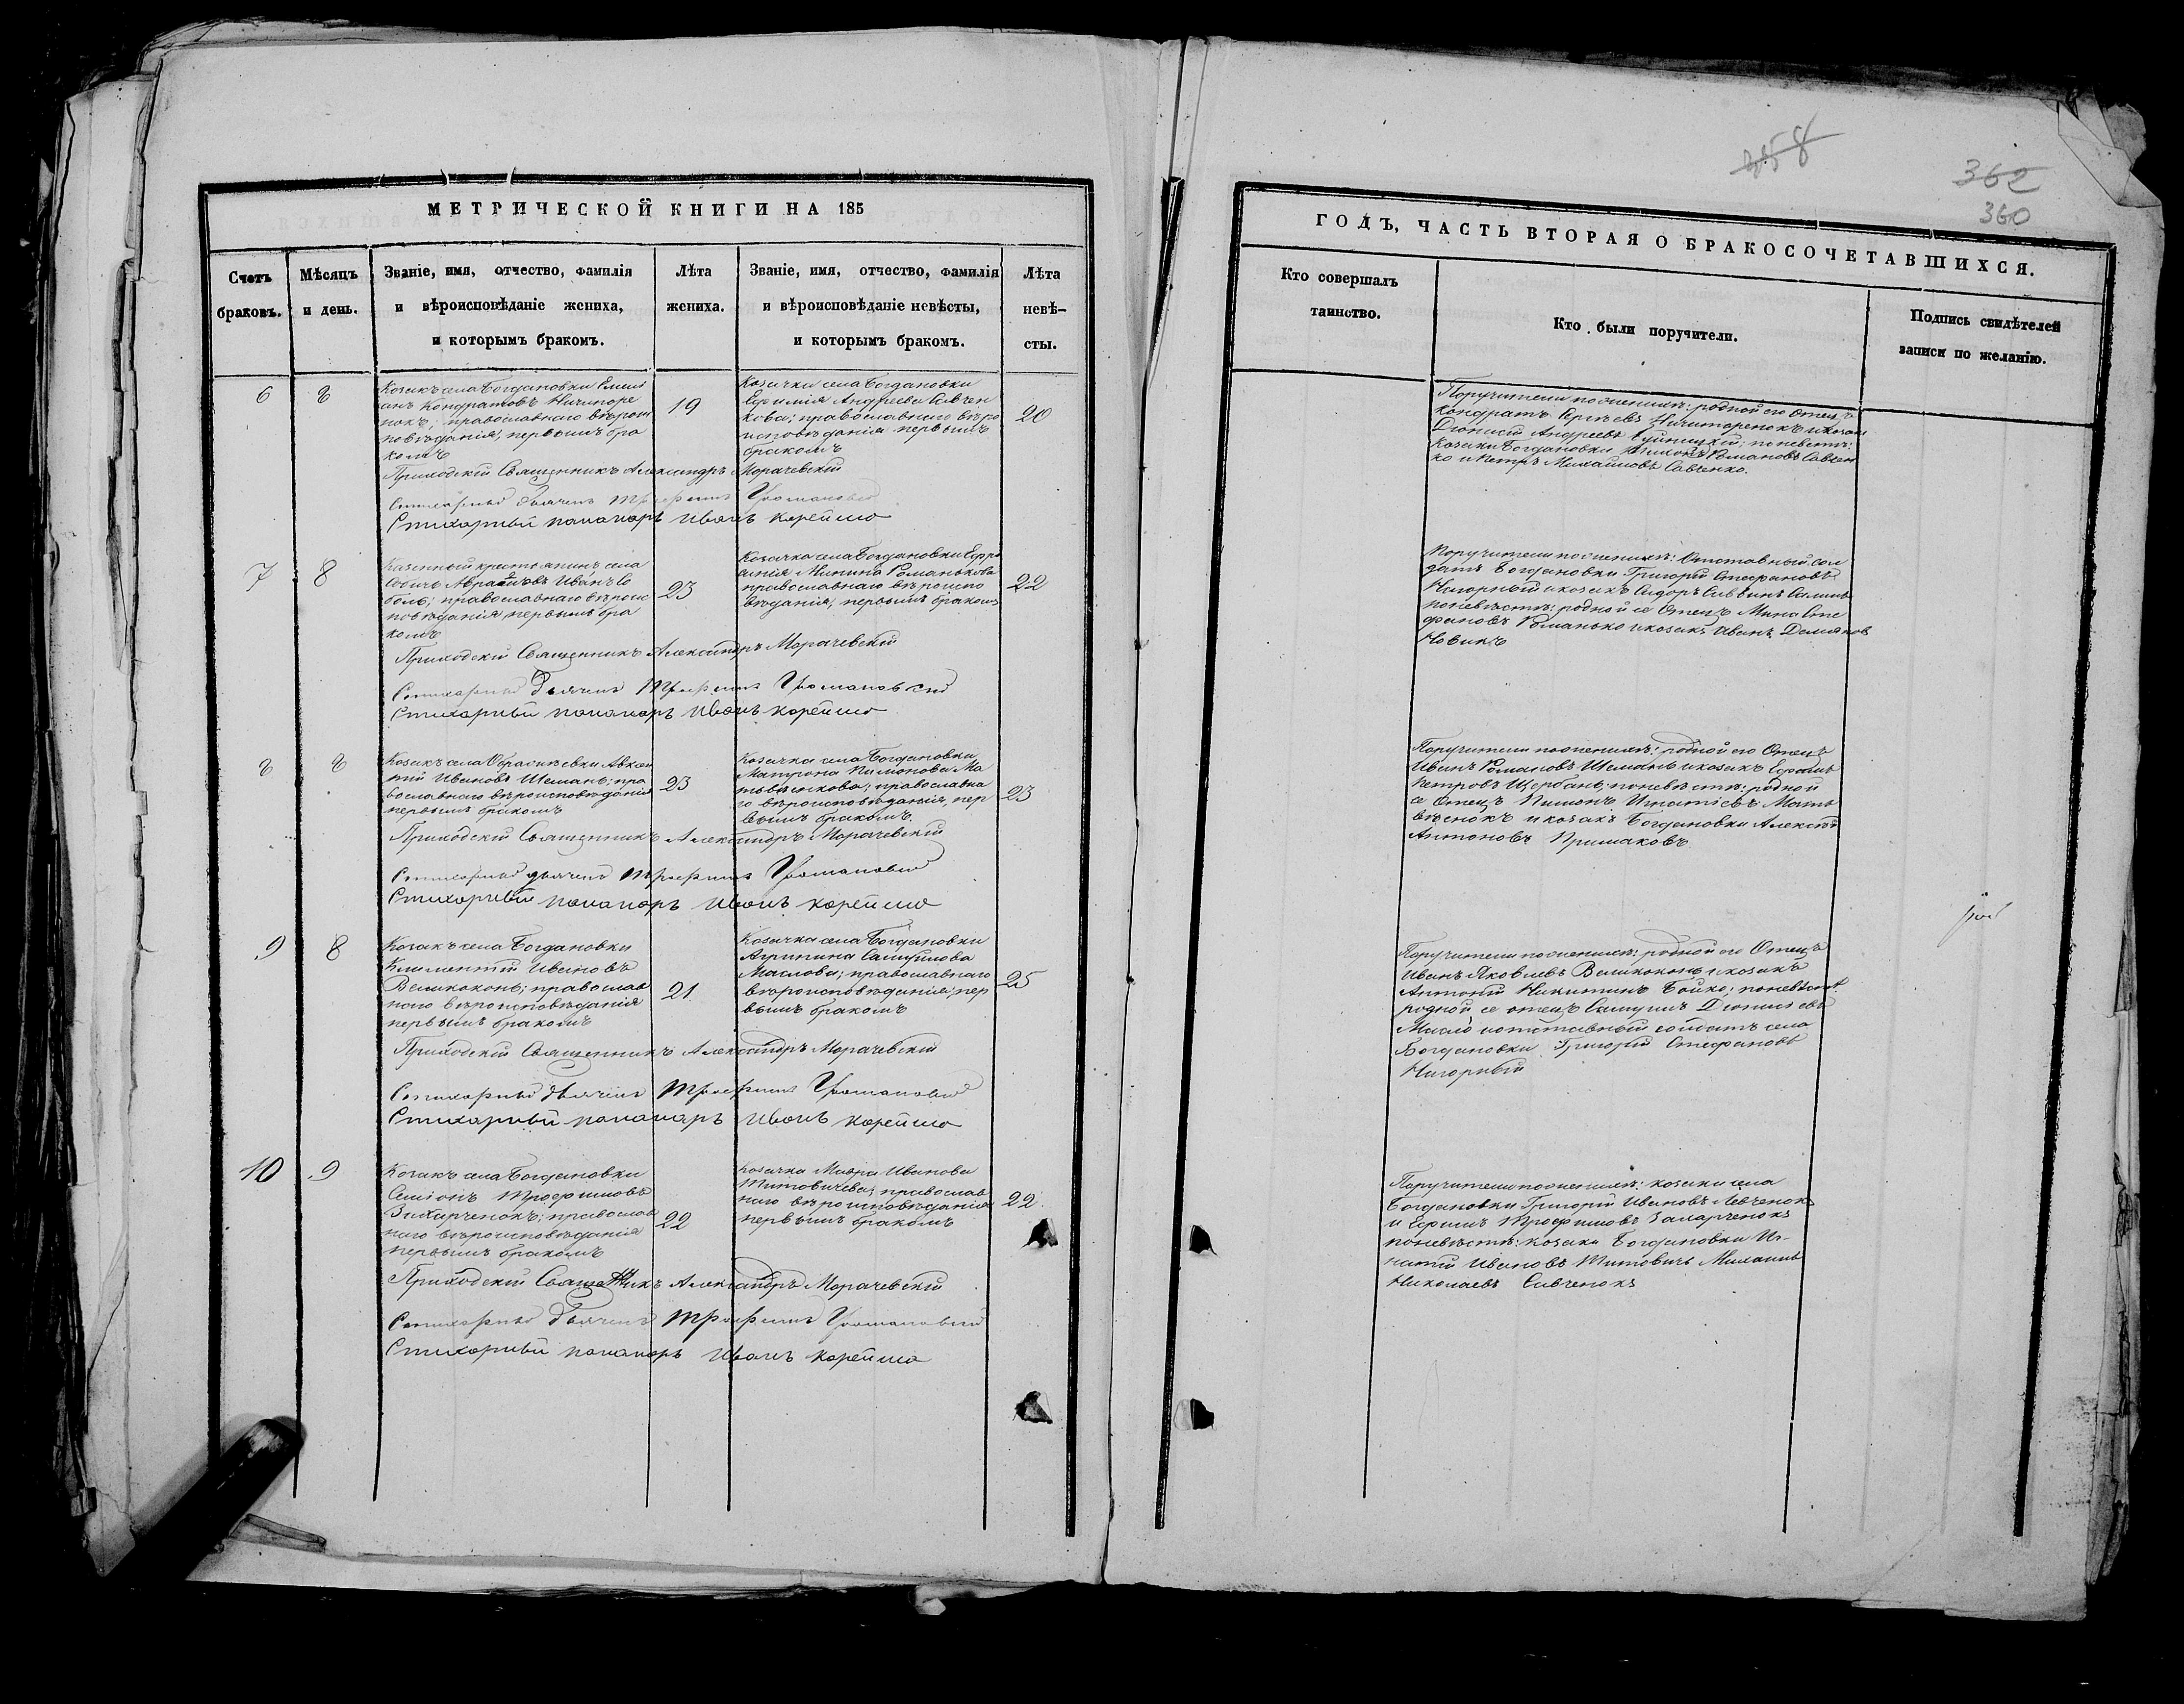 МЕТРИЧЕСКОЙ КНИГИ НА 185
Счетъ браковъ.
Мѣсяцъ и день.
Званіе, имя, отчество, фамилія
и вѣроисповѣданіе жениха,
и которымъ бракомъ.
Лѣта жениха.
Званіе, имя, отчество, фамилія
и вѣроисповѣданіе невѣсты,
и которымъ бракомъ.
Лѣта невѣ-
сты.
6
8
Козакъ села Богдановки Емель
анъ Кондратовъ Ничипоре
нокъ; православнаго вѣроис
повѣданія, первымъ бра
комъ
19
Козачка села Богдановки
Ефимія Андреева Савчен
кова; православнаго вѣро
исповѣданія первымъ
бракомъ
20
Приходскій Священникъ Александръ Морачевскій
Стихарный дьячекъ Трофимъ
Стихарный пономарь Иванъ Корейша
7
8
Казенный крестьянинъ села
Иванъ Со
боль; православнаго вѣроис
повѣданія первымъ бра
комъ
23
Козачка села Богдановки Ефро
синія Минина Романькова
православнаго вѣроиспо
вѣданія; первымъ бракомъ
22
Приходскій Священникъ Александръ Морачевскій
Стихарный дьячекъ Трофимъ
Стихарный пономарь Иванъ Корейша
8
8
Козакъ села Авксен
тій Ивановъ Шемань; пра
вославнаго вѣроисповѣданія
первымъ бракомъ
23
Козачка села Богдановки
Матрона Пимонова Ма
твѣенкова; православна
го вѣроисповѣданія, пер
вымъ бракомъ.
23
Приходскій Священникъ Александръ Морачевскій
Стихарный дьячекъ Трофимъ
Стихарный пономарь Иванъ Корейша
9
8
Козакъ села Богдановки
Климентій Ивановъ
Великоконь; православ
наго вѣроисповѣданія
первымъ бракомъ
21
Козачка села Богдановки
Агрипина Самуилова
Маслова; православнаго
вѣроисповѣданія; пер
вымъ бракомъ
25
Приходскій Священникъ Александръ Морачевскій
Стихарный дьячекъ Трофимъ
Стихарный пономарь Иванъ Корейша
10
9
Козакъ села Богдановки
Симіонъ Трофимовъ
Захарченокъ; православ
наго вѣроисповѣданія
первымъ бракомъ
22
Козачка Мавра Иванова
Титовичева; православ
наго вѣроисповѣданія
первымъ бракомъ
22
Приходскій Священникъ Александръ Морачевскій
Стихарный дьячекъ Трофимъ
Стихарный пономарь Иванъ Корейша
358
362
360
ГОДЪ, ЧАСТЬ ВТОРАЯ О БРАКОСОЧЕТАВШИХСЯ.
Кто совершалъ
таинство.
Кто были поручители.
Подпись свидѣтелей
записи по желанію.
Поручители по женихѣ: родной его Отецъ
Кондратъ Ничипоренокъ и козакъ
Діонисій Андреевъ по невѣстѣ:
Козаки Богдановки Романовъ Савчен
ко и Петръ Михайловъ Савченко.
Поручители по женихѣ: Отставный сол
датъ Богдановки Григорій Стефановъ
Нигорный и козакъ Сидоръ
по невѣстѣ: родной ее Отецъ Мина Сте
фановъ Романько и козакъ Иванъ Демяновъ
Новикъ
Поручители по женихѣ: родной его Отецъ
Иванъ Романовъ Шемань и козакъ
Петровъ Щербань; по невѣстѣ: родной
ее Отецъ Пимонъ Игнатіевъ Матв
вѣенокъ и козакъ Богдановки Алексѣй
Антоновъ Примаковъ
Поручители по женихѣ: родной его Отецъ
Иванъ Яковлевъ Великоконь и козакъ
Антоній Никитинъ Бойко; по невѣстѣ
родной ее отецъ Самуилъ Діонисіевъ
Масло и отставный солдатъ села
Богдановки Григорій Стефановъ
Нигорный
Поручители по женихѣ: козаки села
Богдановки Григорій Ивановъ Левченокъ
и Ефимъ Трофимовъ Захарченокъ
по невѣстѣ: козаки Богдановки Иг-
натій Ивановъ Титовичъ Михаилъ
Николаевъ Савченокъ